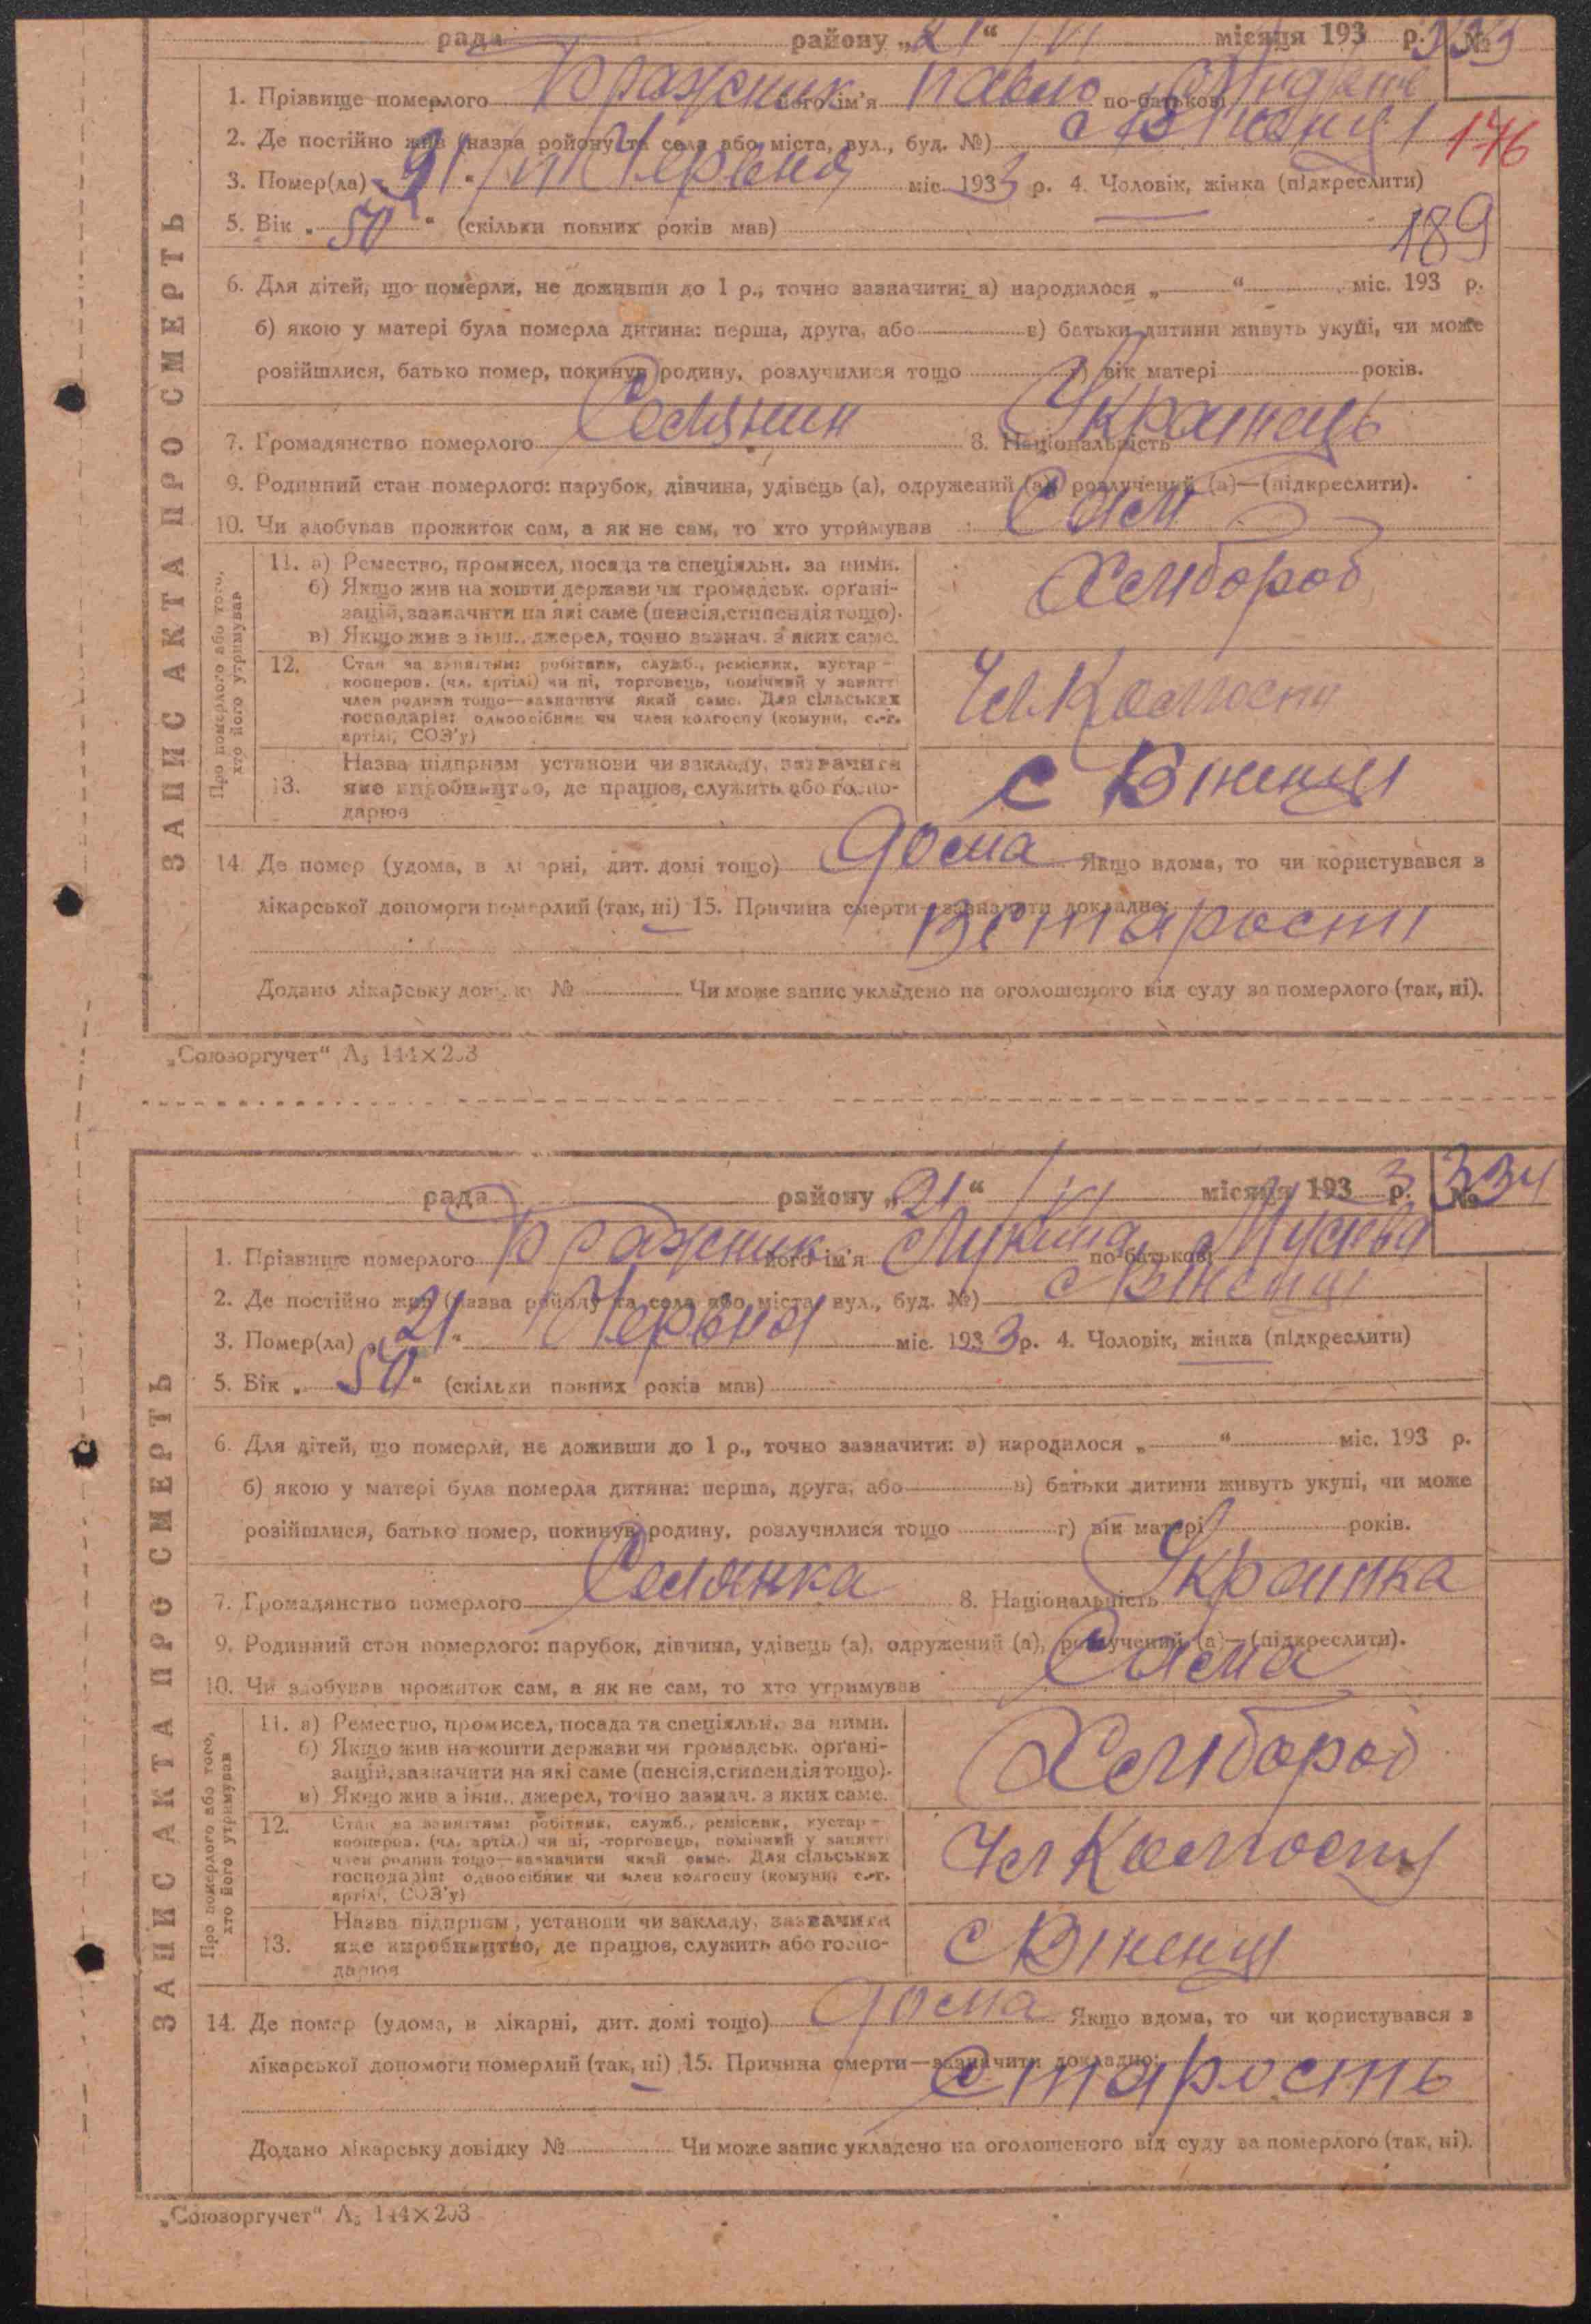 рада району „21“ /VI місяця 193 р. № 333
1. Прізвище померлого Бражник його ім'я Павло по-батькові
176
2. Де постійно жив (назва району та села або міста, вул., буд. №) с Віненці
3. Помер(ла) „21/VI“ Червня міс. 1933 р. 4. Чоловік, жінка (підкреслити)
5. Вік „50“ (скільки повних років мав)
189
6. Для дітей, що померли, не доживши до 1 р., точно зазначити: а) народилося „ “ міс. 193 р.
б) якою у матері була померла дитина: перша, друга, або в) батьки дитини живуть укупі, чи може
розійшлися, батько помер, покинув родину, розлучилися тощо г) вік матері років.
7. Громадянство померлого Селянин 8. Національність Українець
9. Родинний стан померлого: парубок, дівчина, удівець (а), одружений (а), розлучений (а)—(підкреслити).
10. Чи здобував прожиток сам, а як не сам, то хто утримував Сам
ЗАПИС АКТА ПРО СМЕРТЬ
Про померлого або того,
хто його утримував
11. а) Ремество, промисел, посада та спеціяльн. за ними.
б) Якщо жив на кошти держави чи громадськ. орґані-
зацій, зазначити на які саме (пенсія, стипендія тощо).
в) Якщо жив з інш.. джерел, точно зазнач. з яких саме.
Хлібороб
12. Стан за заняттям: робітник, служб., ремісник, кустар -
кооперов. (чл. артілі) чи ні, торговець, помічний у занятті
член родини тощо—зазначити який саме. Для сільських
господарів: одноосібник чи член колгоспу (комуни, с.-г.
артілі, СОЗ'у)
Чл. Колгоспу
Назва підприєм установи чи закладу, зазначити
13. яке виробництво, де працює, служить або госпо-
дарює
с Віненці
14. Де помер (удома, в лікарні, дит. домі тощо) дома Якщо вдома, то чи користувався з
лікарської допомоги померлий (так, ні) 15. Причина смерти—зазначити докладно:
Встарости
Додано лікарську довідку № Чи може запис укладено на оголошеного від суду за померлого (так, ні).
„Союзоргучет“ А₅ 144×203
рада району „21“ /VI місяця 1933 р. № 334
1. Прізвище померлого Бражник його ім'я по-батькові Мусієва
2. Де постійно жив (назва району та села або міста, вул., буд. №) с Віненці
3. Помер(ла) „21“ Червня міс. 1933 р. 4. Чоловік, жінка (підкреслити)
5. Вік „50“ (скільки повних років мав)
6. Для дітей, що померли, не доживши до 1 р., точно зазначити: а) народилося „ “ міс. 193 р.
б) якою у матері була померла дитяна: перша, друга, або в) батьки дитини живуть укупі, чи може
розійшлися, батько помер, покинув родину, розлучилися тощо г) вік матері років.
7. Громадянство померлого Селянка 8. Національність Українка
9. Родинний стан померлого: парубок, дівчина, удівець (а), одружений (а), розлучений (а)—(підкреслити).
10. Чи здобував прожиток сам, а як не сам, то хто утримував Сама
ЗАПИС АКТА ПРО СМЕРТЬ
Про померлого або того,
хто його утримував
11. а) Ремество, промисел, посада та спеціяльн. за ними.
б) Якщо жив на кошти держави чи громадськ. орґані-
зацій, зазначити на які саме (пенсія, стипендія тощо).
в) Якщо жив з інш.. джерел, точно зазнач. з яких саме.
Хлібороб
12. Стан за заняттям: робітник, служб., ремісник, кустар -
кооперов. (чл. артіл.) чи ні, торговець, помічний у занятті
член родини тощо—зазначити який саме. Для сільських
господарів: одноосібник чи член колгоспу (комуни, с.-г.
артілі, СОЗ'у)
Чл Колгоспу
Назва підприєм, установи чи закладу, зазначити
13. яке виробництво, де працює, служить або госпо-
дарює
с Віненці
14. Де помер (удома, в лікарні, дит. домі тощо) дома Якщо вдома, то чи користувався з
лікарської допомоги померлий (так, ні) 15. Причина смерти—зазначити докладно:
Старость
Додано лікарську довідку № Чи може запис укладено на оголошеного від суду за померлого (так, ні).
„Союзоргучет“ А₅ 144×203